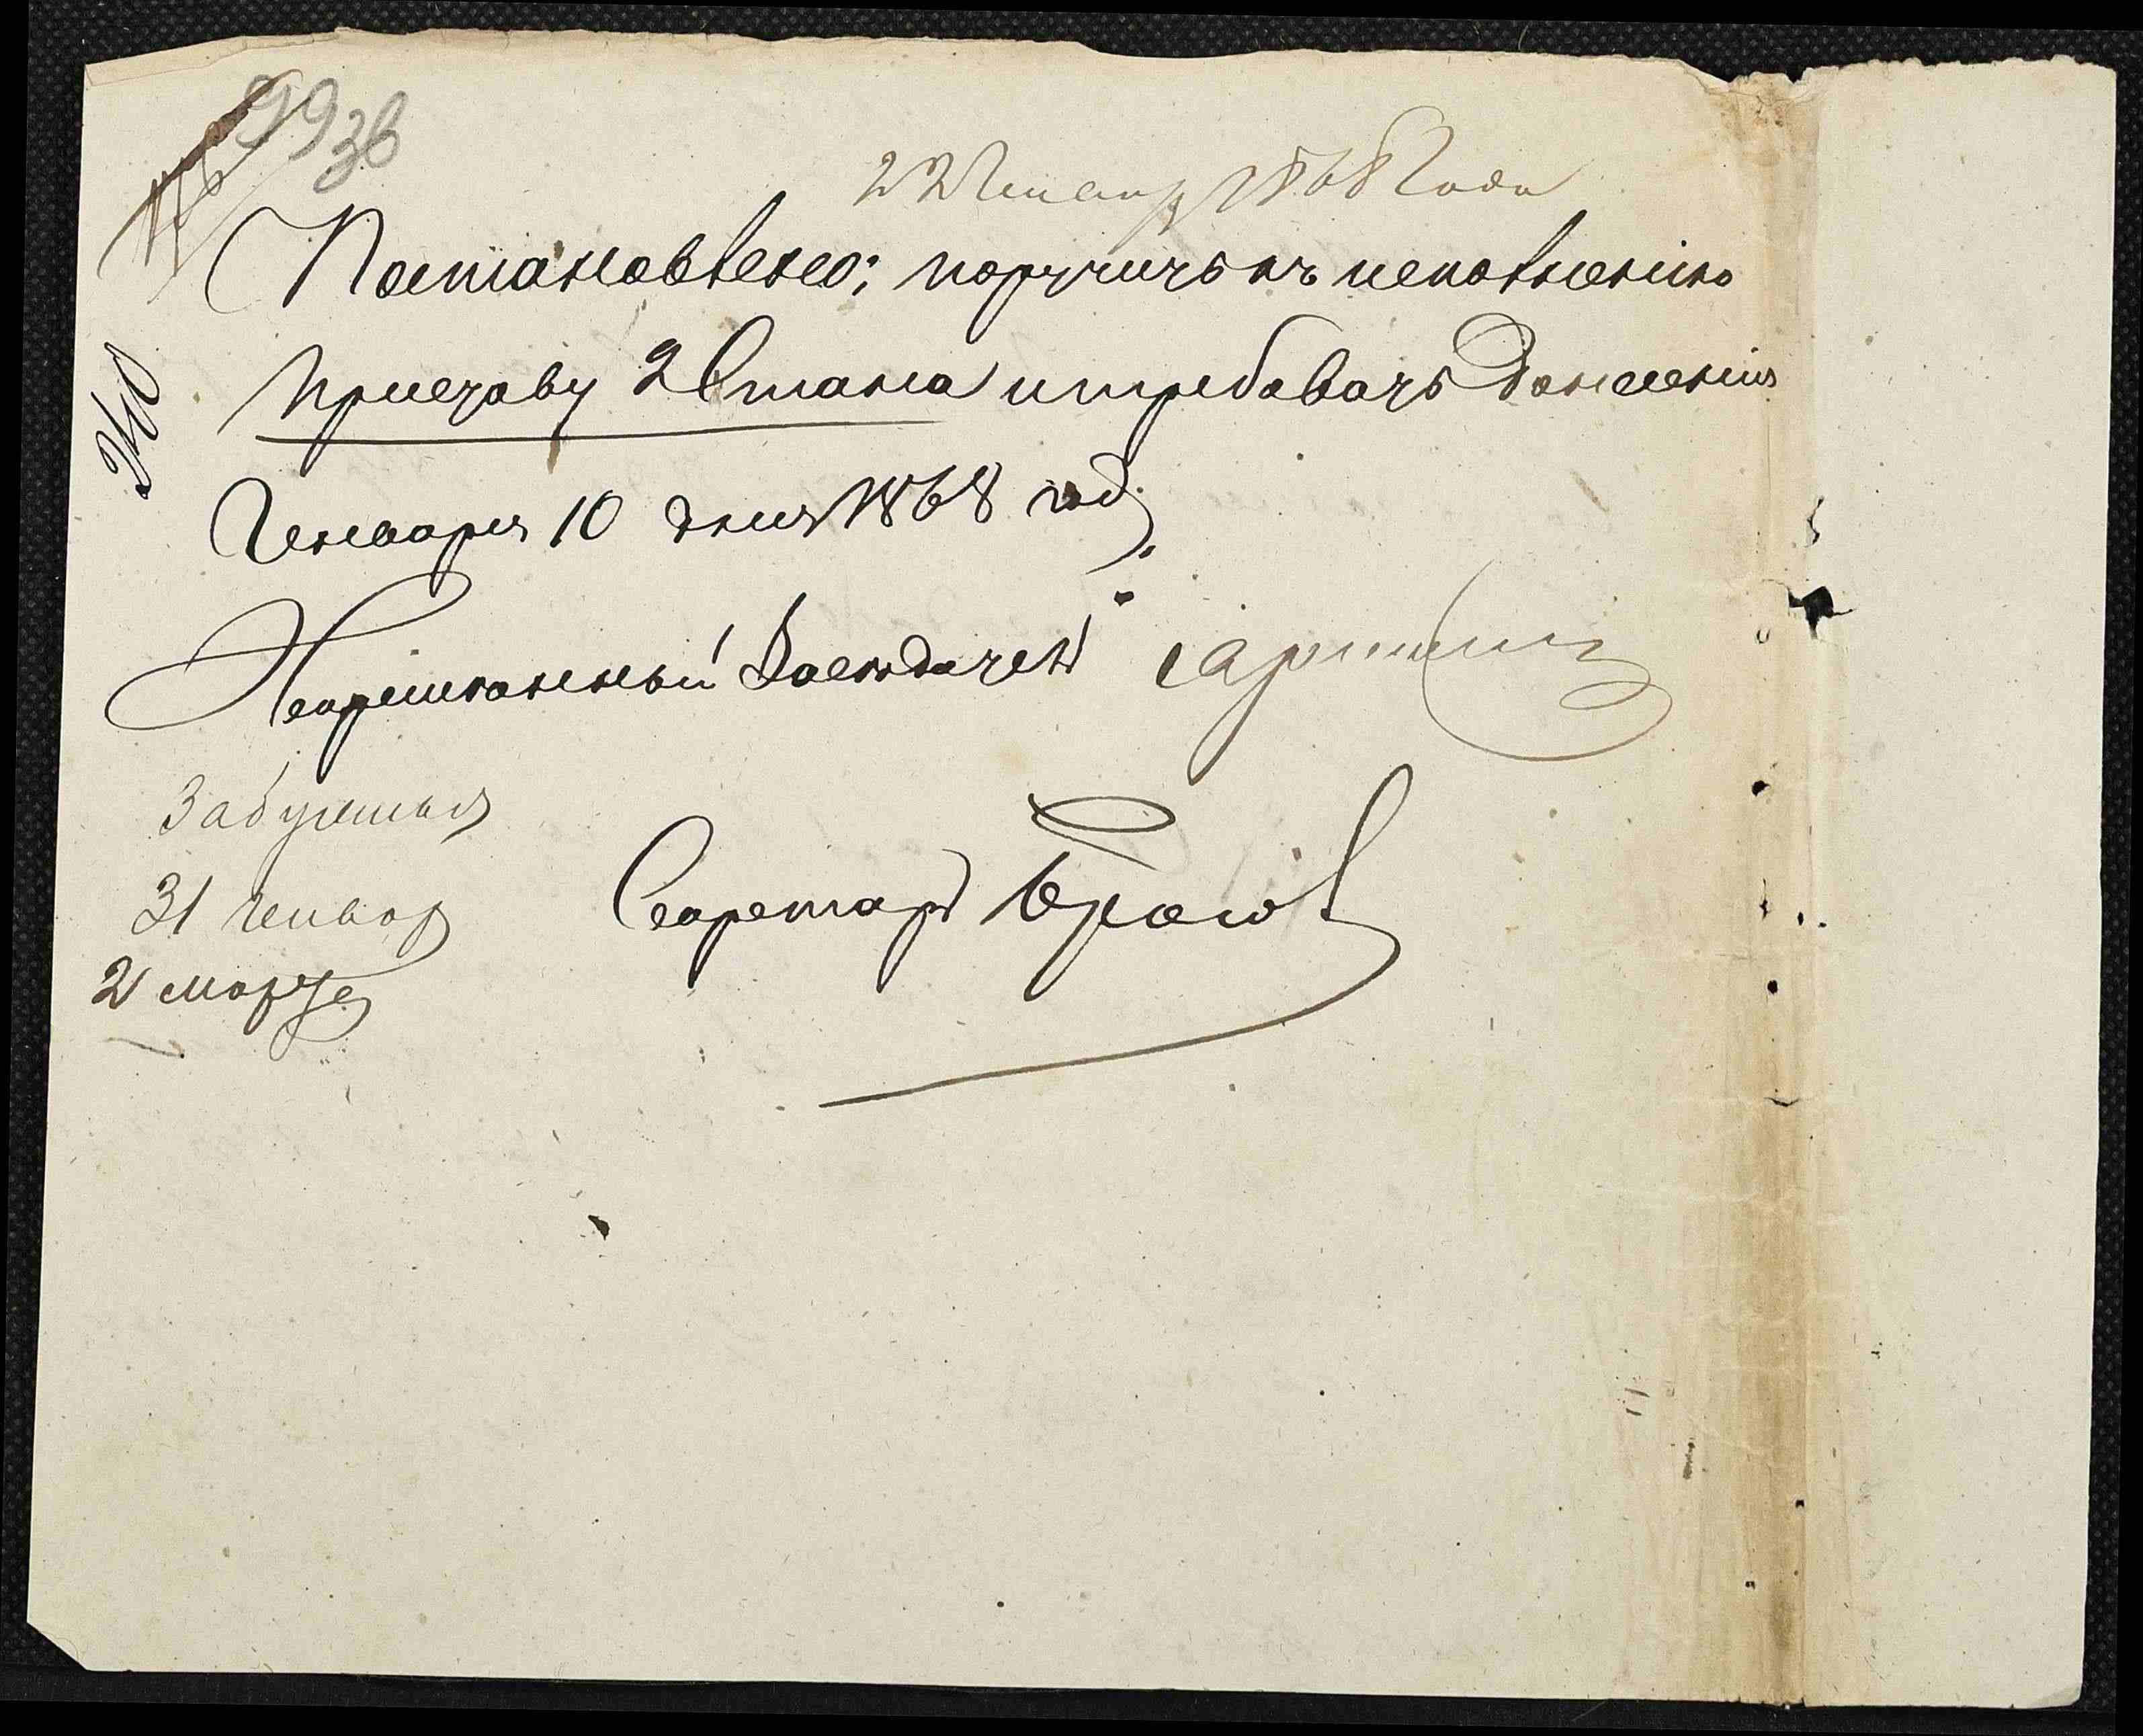 993в
22 Генваря 1868 Года
Постановлено; поручить къ исполненію
Приставу 2 Стана и требовать донесенія
240
Генваря 10 дня 1868 год.
Непременный Заседатель
Забушныя
31 генвар
Секретарь
2 марта